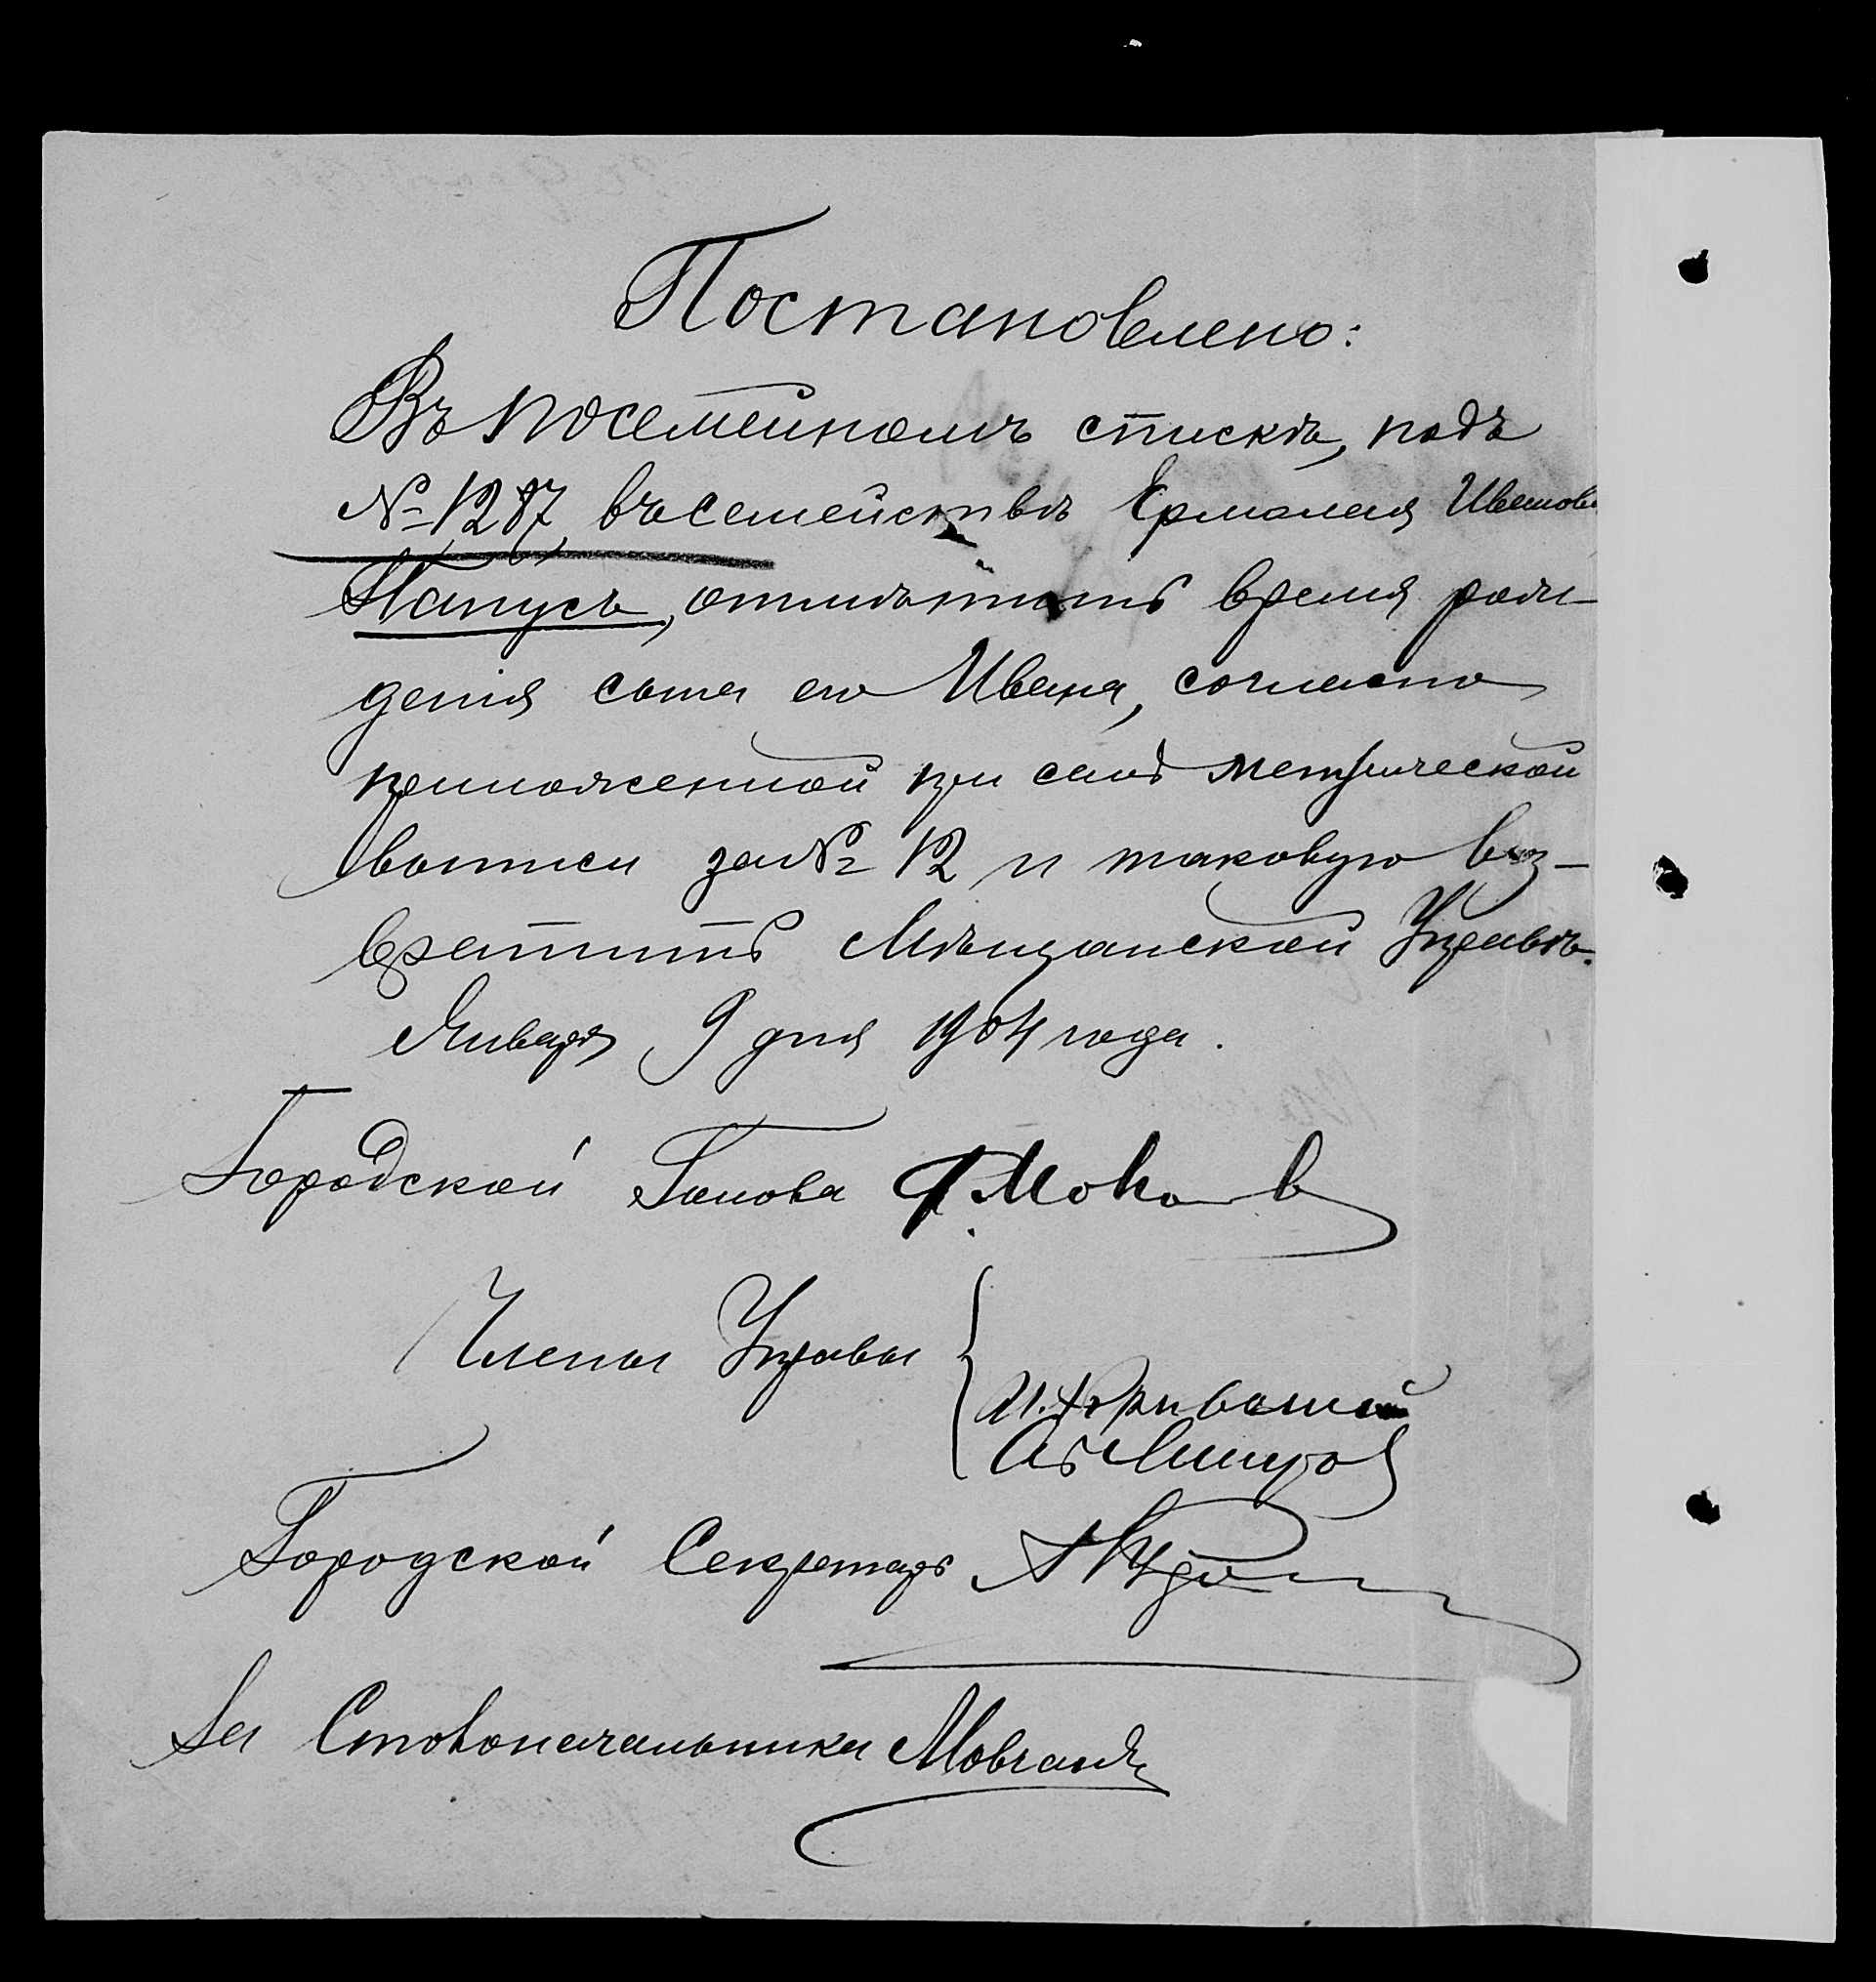 Постановлено:
Въ посемейномъ спискѣ, подъ
№ 1287 въ семействѣ Ермолая Иванова
Папусъ, отмѣтить время рож-
денія сына его Ивана, согласно
приложенной при семъ метрической
выписи за № 12 и таковую воз-
вратить Мѣщанской Управѣ.
Января 9 дня 1904 года.
Городской Голова
Члены Управы
Городской Секретарь
За Столоначальника Мовчанъ